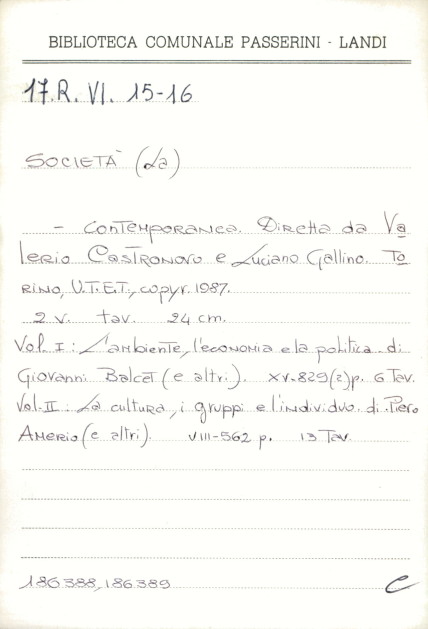 BIBLIOTECA COMUNALE PASSERINI - LANDI
17.R. VI. 15-16
SOCIETÀ (La)
- contemporanea. Diretta da Va
lerio Castronovo e Luciano Gallino. To
rino, U.T.E.T., copyr. 1987.
2 v. tav. 24 cm.
Vol. I: L'ambiente, l'economia e la politica. di
Giovanni Balcet (e altri). XV-829(2)p. 6 Tav.
Vol. II: La cultura, i gruppi e l'individuo. di Piero
Amerio (e altri). VIII-562 p. 13 Tav.
186388, 186389
C